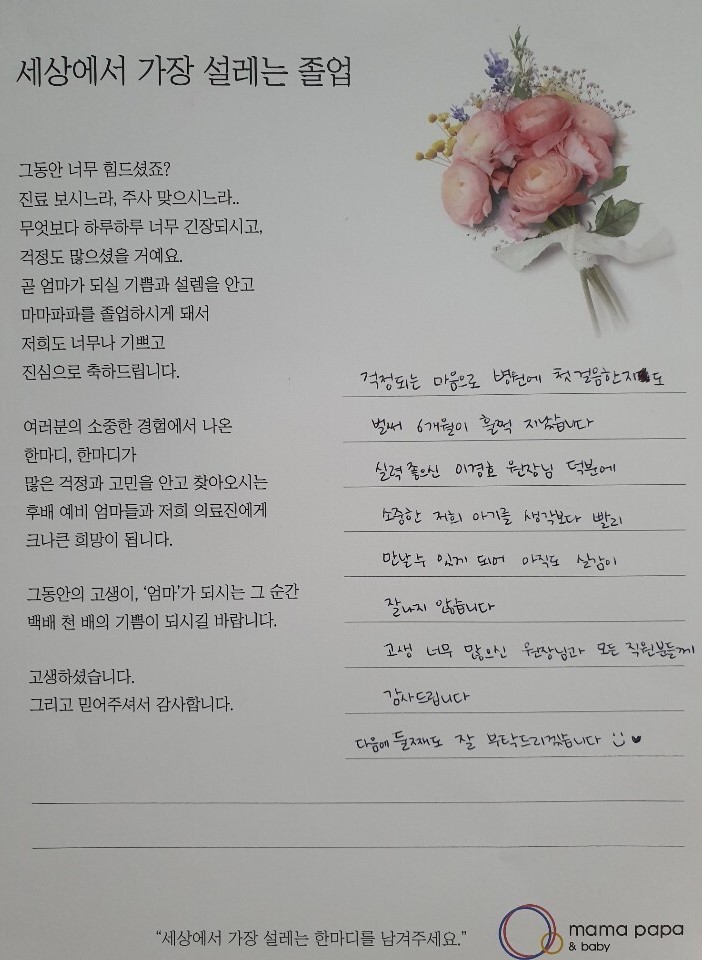 세상에서 가장 설레는 졸업
그동안 너무 힘드셨죠?
진료 보시느라, 주사 맞으시느라..
무엇보다 하루하루 너무 긴장되시고,
걱정도 많으셨을 거예요.
곧 엄마가 되실 기쁨과 설렘을 안고
마마파파를 졸업하시게 돼서
저희도 너무나 기쁘고
진심으로 축하드립니다.
여러분의 소중한 경험에서 나온
한마디, 한마디가
많은 걱정과 고민을 안고 찾아오시는
후배 예비 엄마들과 저희 의료진에게
크나큰 희망이 됩니다.
그동안의 고생이, '엄마'가 되시는 그 순간
백배 천 배의 기쁨이 되시길 바랍니다.
고생하셨습니다.
그리고 믿어주셔서 감사합니다.
걱정되는 마음으로 병원에 첫걸음한지도
벌써 6개월이 훌쩍 지났습니다
실력 좋으신 이경호 원장님 덕분에
소중한 저희 아기를 생각보다 빨리
만날수 있게 되어 아직도 실감이
잘나지 않습니다
고생 너무 많으신 원장님과 모든 직원분들께
감사드립니다
다음에 둘째도 잘 부탁드리겠습니다
"세상에서 가장 설레는 한마디를 남겨주세요."
mama papa
& baby